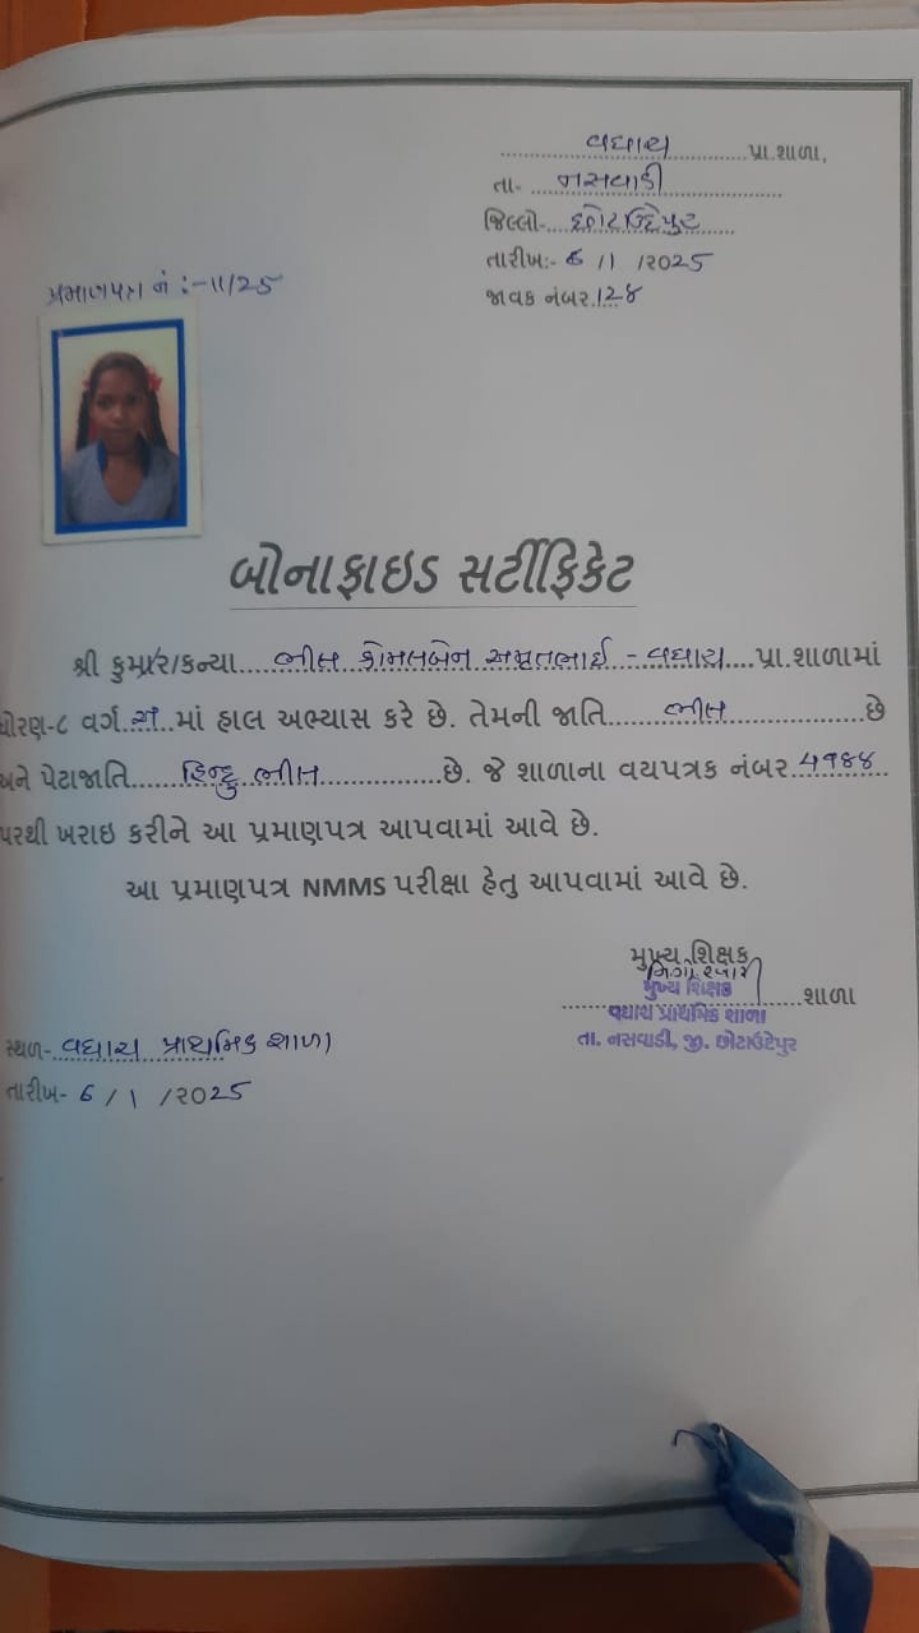 વઘાચ પ્રા.શાળા,
તા- નસવાડી
જિલ્લો- છોટાઉદેપુર
તારીખ:- 6 / 1 /૨૦25
જાવક નંબર.12૪
પ્રમાણપત્ર નં :- 11/25
બોનાફાઇડ સર્ટીફિકેટ
શ્રી કુમાર/કન્યા.... ભીલ કોમલબેન અમૃતભાઈ - વઘાચ.... પ્રા.શાળામાં
ધોરણ-૮ વર્ગ.અ...માં હાલ અભ્યાસ કરે છે. તેમની જાતિ...... ભીલ ......છે
અને પેટાજાતિ...... હિન્દુ ભીલ ......છે. જે શાળાના વયપત્રક નંબર
પરથી ખરાઇ કરીને આ પ્રમાણપત્ર આપવામાં આવે છે.
આ પ્રમાણપત્ર NMMS પરીક્ષા હેતુ આપવામાં આવે છે.
મુખ્ય શિક્ષક
મુખ્ય શિક્ષક
શાળા
વઘાચ પ્રાથમિક શાળા
તા. નસવાડી, જી. છોટાઉદેપુર
સ્થળ- વઘાચ પ્રાથમિક શાળા
તારીખ- 6 / 1 /૨૦25